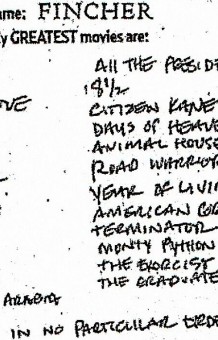 ame: FINCHER
y GREATEST movies are:
All THE PRESIDE
8½
CITIZEN KANE
DAYS OF HEAVE
ANIMAL HOUSE
ROAD WARRIOR
YEAR OF LIVI
AMERICAN
TERMINATOR
MONTY PYTHON
THE EXORCIST
THE GRADUATE
ARABIA
IN NO PARTICULAR ORDE